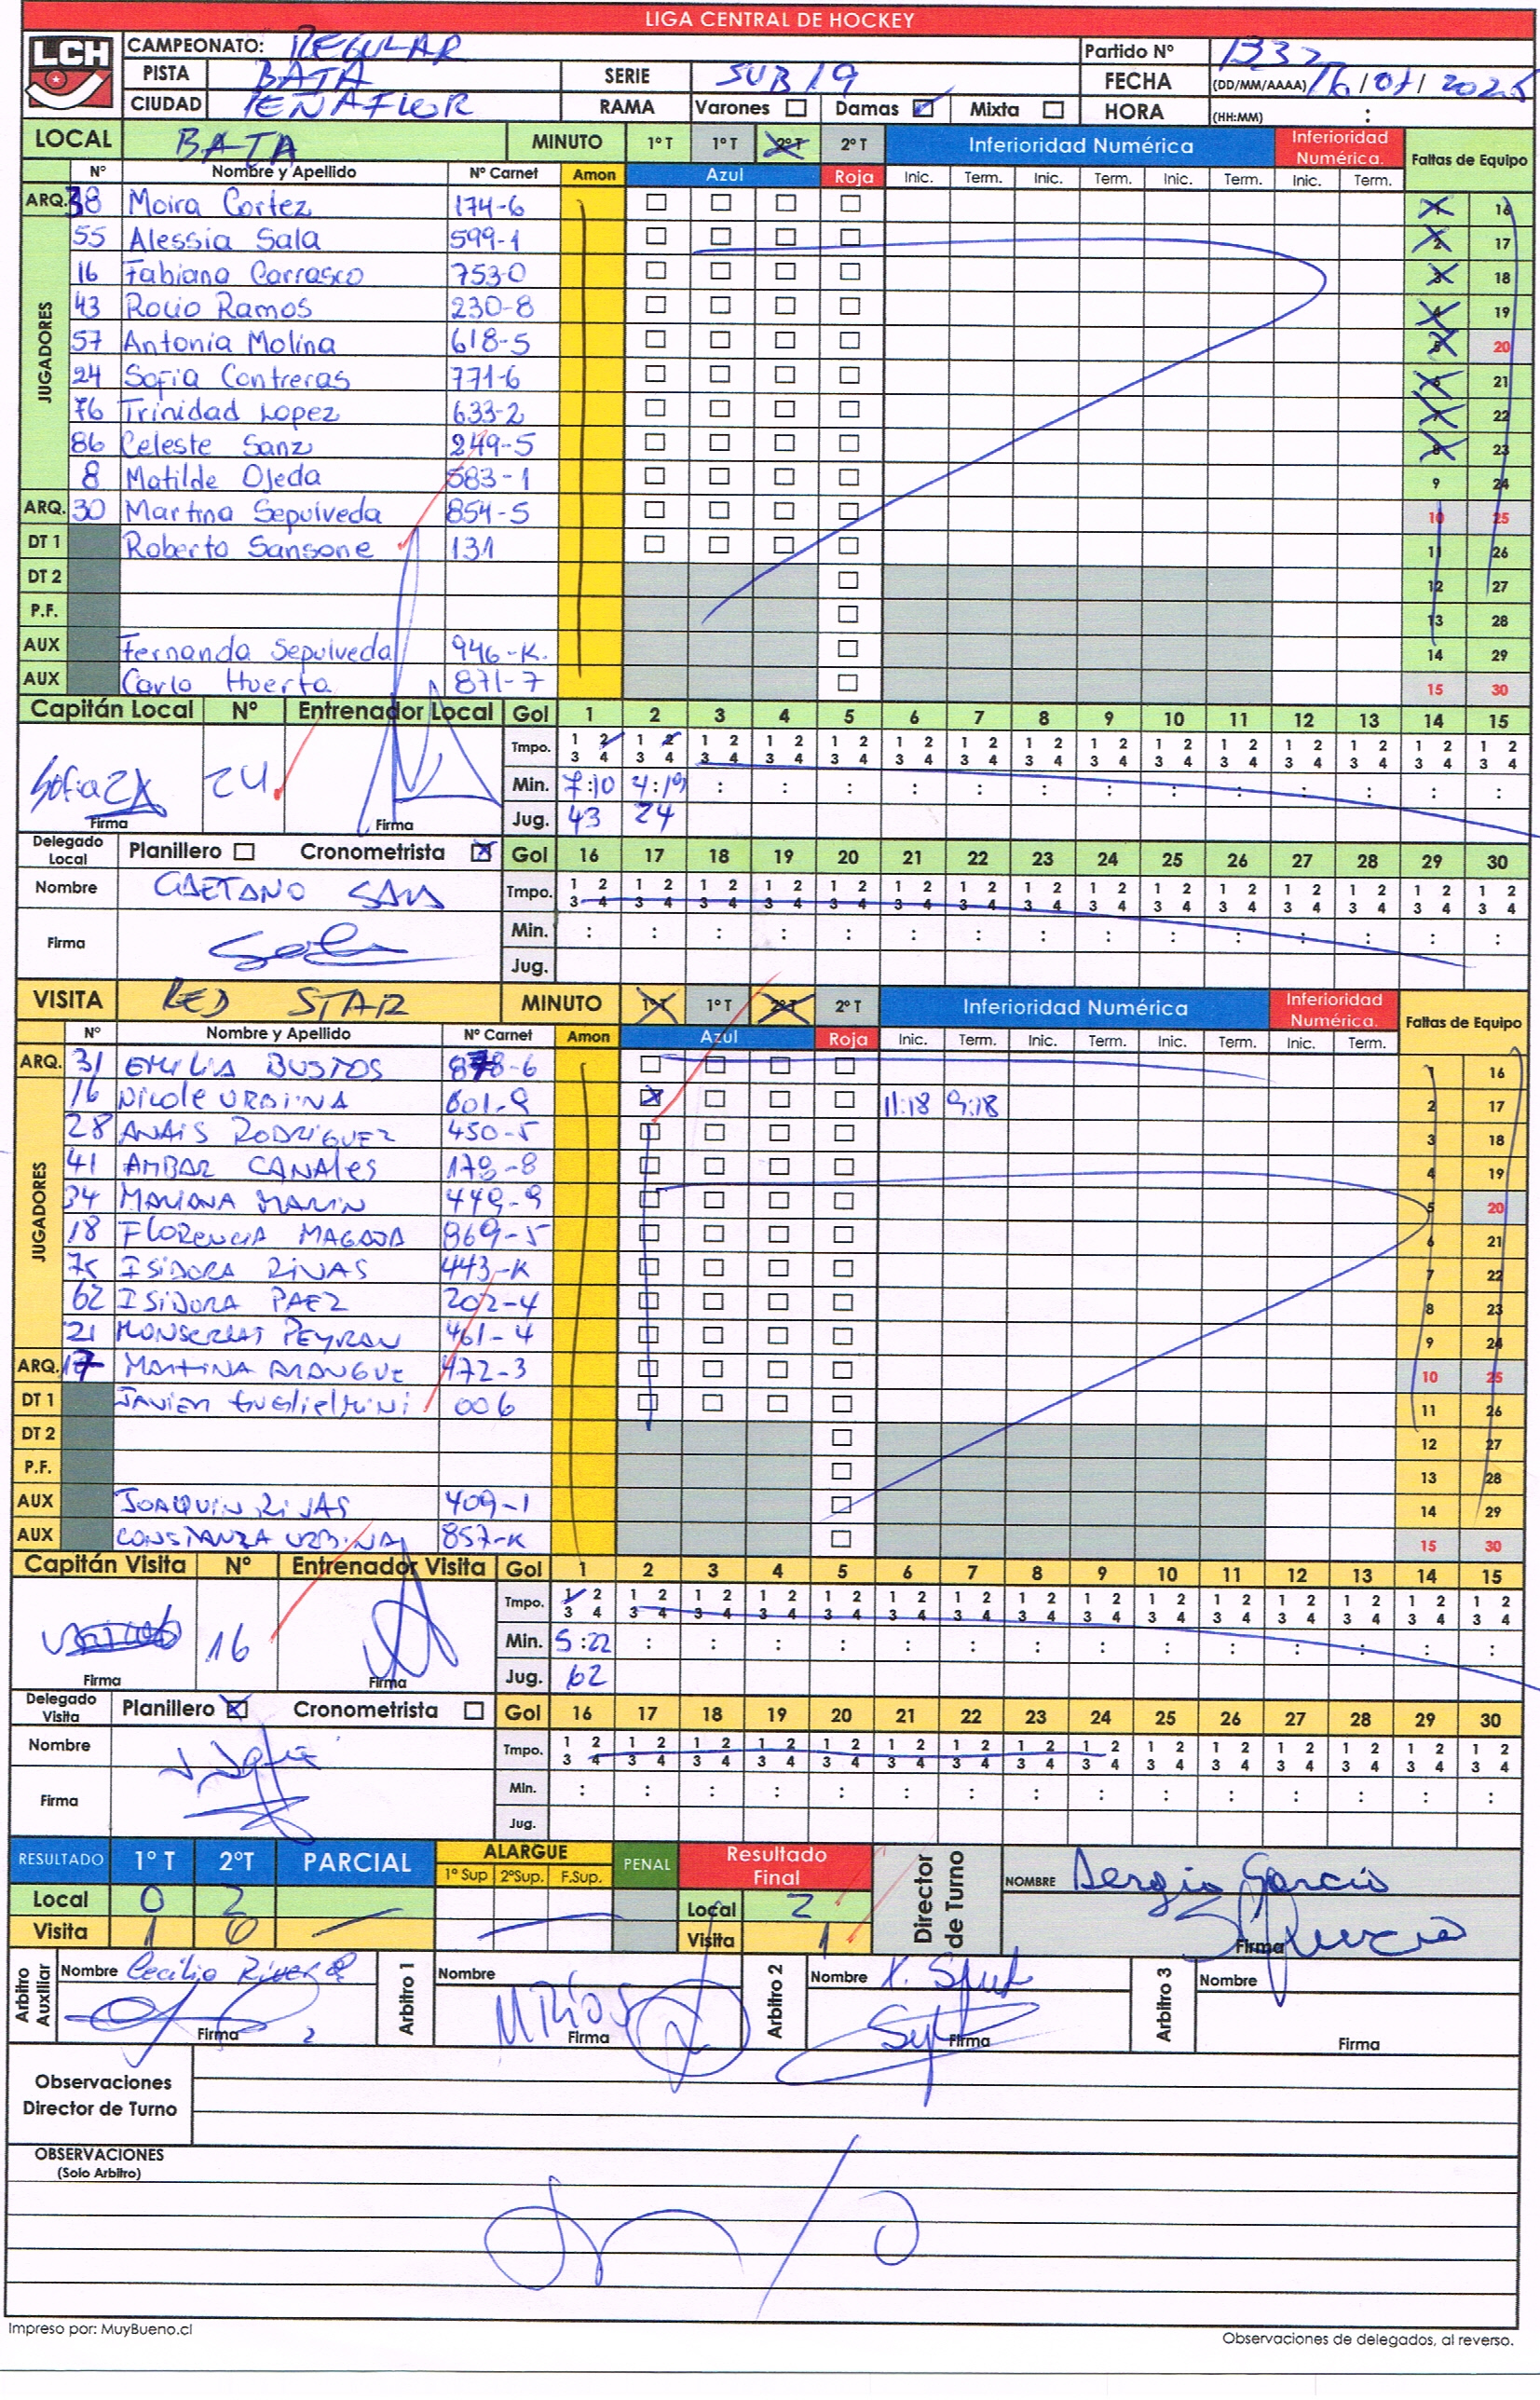 LIGA CENTRAL DE HOCKEY
LCH
CAMPEONATO: REGULAR Partido Nº 1332
PISTA BATA SERIE SUB 19 FECHA (DD/MM/AAAA) 16/01/2025
CIUDAD PEÑAFLOR RAMA Varones Damas Mixta HORA (HH:MM) :
LOCAL BATA MINUTO 1º T 1º T 2º T 2º T Inferioridad Numérica Inferioridad Numérica. Faltas de Equipo
Nº Nombre y Apellido Nº Carnet Amon Azul Roja Inic. Term. Inic. Term. Inic. Term. Inic. Term.
JUGADORES
ARQ. 38 Moira Cortez 174-6 1 16
55 Alessia Sala 599-1 2 17
16 Fabiana Carrasco 753-0 3 18
43 Rocio Ramos 230-8 4 19
57 Antonia Molina 618-5 5 20
24 Sofia Contreras 771-6 6 21
76 Trinidad Lopez 633-2 7 22
86 Celeste Sanz 249-5 8 23
8 Matilde Ojeda 583-1 9 24
ARQ. 30 Martina Sepulveda 854-5 10 25
DT 1 Roberto Sansone 131 11 26
DT 2 12 27
P.F. 13 28
AUX Fernanda Sepulveda 946-K. 14 29
AUX Carlo Huerta 871-7 15 30
Capitán Local Nº Entrenador Local Gol 1 2 3 4 5 6 7 8 9 10 11 12 13 14 15
Tmpo. 1 2 3 4 1 2 3 4 1 2 3 4 1 2 3 4 1 2 3 4 1 2 3 4 1 2 3 4 1 2 3 4 1 2 3 4 1 2 3 4 1 2 3 4 1 2 3 4 1 2 3 4 1 2 3 4 1 2 3 4
Sofia 24 Min. 7:10 4:19 : : : : : : : : : : : : :
Firma Firma Jug. 43 24
Delegado Local Planillero Cronometrista Gol 16 17 18 19 20 21 22 23 24 25 26 27 28 29 30
Nombre GAETANO SALA Tmpo. 1 2 3 4 1 2 3 4 1 2 3 4 1 2 3 4 1 2 3 4 1 2 3 4 1 2 3 4 1 2 3 4 1 2 3 4 1 2 3 4 1 2 3 4 1 2 3 4 1 2 3 4 1 2 3 4 1 2 3 4
Firma Min. : : : : : : : : : : : : : : :
Jug.
VISITA RED STAR MINUTO 1º T 1º T 2º T 2º T Inferioridad Numérica Inferioridad Numérica. Faltas de Equipo
Nº Nombre y Apellido Nº Carnet Amon Azul Roja Inic. Term. Inic. Term. Inic. Term. Inic. Term.
JUGADORES
ARQ. 31 EMILIA BUSTOS 878-6 1 16
16 Nicole URBINA 601-9 11:18 9:18 2 17
28 ANAIS RODRIGUEZ 450-5 3 18
41 AMBAR CANALES 179-8 4 19
34 MARIANA MARIN 449-9 5 20
18 FLORENCIA MAGAÑA 869-5 6 21
75 ISIDORA RIVAS 443-K 7 22
62 ISIDORA PAEZ 202-4 8 23
21 MONSERRAT PEYRAN 461-4 9 24
ARQ. 17 MARTINA ARANGUE 472-3 10 25
DT 1 JAVIER Guglielmini 006 11 26
DT 2 12 27
P.F. 13 28
AUX JOAQUIN RIVAS 409-1 14 29
AUX CONSTANZA URBINA 857-K 15 30
Capitán Visita Nº Entrenador Visita Gol 1 2 3 4 5 6 7 8 9 10 11 12 13 14 15
Tmpo. 1 2 3 4 1 2 3 4 1 2 3 4 1 2 3 4 1 2 3 4 1 2 3 4 1 2 3 4 1 2 3 4 1 2 3 4 1 2 3 4 1 2 3 4 1 2 3 4 1 2 3 4 1 2 3 4 1 2 3 4
16 Min. 5:22 : : : : : : : : : : : : : :
Firma Firma Jug. 62
Delegado Visita Planillero Cronometrista Gol 16 17 18 19 20 21 22 23 24 25 26 27 28 29 30
Nombre Tmpo. 1 2 3 4 1 2 3 4 1 2 3 4 1 2 3 4 1 2 3 4 1 2 3 4 1 2 3 4 1 2 3 4 1 2 3 4 1 2 3 4 1 2 3 4 1 2 3 4 1 2 3 4 1 2 3 4 1 2 3 4
Firma Min. : : : : : : : : : : : : : : :
Jug.
RESULTADO 1º T 2ºT PARCIAL ALARGUE 1º Sup 2ºSup. F.Sup. PENAL Resultado Final Director de Turno NOMBRE Sergio Garcia
Local 0 2 Local 2
Visita 1 0 Visita 1 Firma
Arbitro Auxiliar Nombre Cecilio Rivera Arbitro 1 Nombre Arbitro 2 Nombre Arbitro 3 Nombre
Firma M Rios Firma Firma Firma
Observaciones
Director de Turno
OBSERVACIONES
(Solo Arbitro)
Impreso por: MuyBueno.cl
Observaciones de delegados, al reverso.